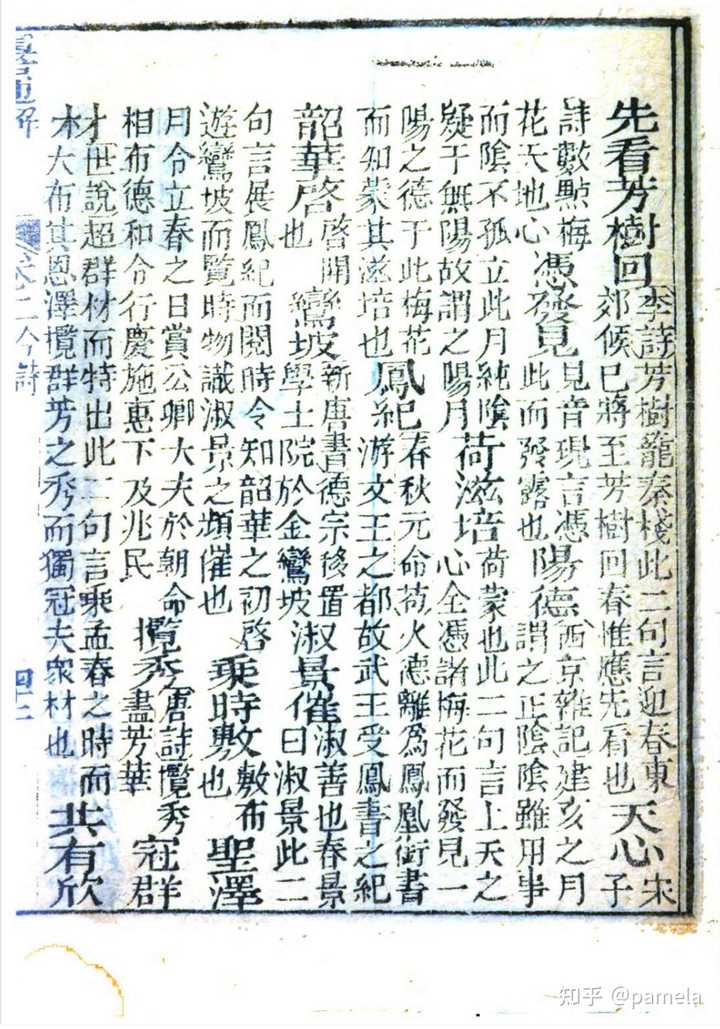 先看芳樹回李詩芳樹籠秦棧此二句言迎春東郊候已將至芳樹回春惟應先看也天心宋子
詩數點梅花天地心憑發見見音現言憑此而發露也陽德西京雜記建亥之月謂之正陰陰雖用事
而陰不孤立此月純陰疑于無陽故謂之陽月荷滋培荷蒙也此二句言上天之心全憑諸梅花而發見一
陽之德于此梅花而知蒙其滋培也鳳紀春秋元命苞火德離為鳳凰銜書游文王之都故武王受鳳書之紀
韶華啓啓開也鸞坡新唐書德宗移置學士院於金鸞坡淑景催淑善也春景曰淑景此二
句言展鳳紀而閱時令知韶華之初啓遊鸞坡而覽時物識淑景之頻催也乘時敷敷布也聖澤
月令立春之日賞公卿大夫於朝命相布德和令行慶施惠下及兆民攬秀唐詩攬秀盡芳華冠群
才世說超群材而特出此二句言乘孟春之時而大布其恩澤攬群芳之秀而獨冠夫衆材也共有欣
卷二今詩
知乎 @pamela